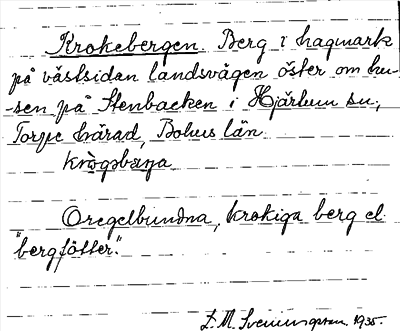 Krokebergen. Berg i hagmark
på västsidan landsvägen öster om hu-
-sen på Stenbacken i Hjärtum sn,
Torpe härad, Bohus län.
Oregelbundna, krokiga berg el.
"bergfötter."
L. M. Svenungsson 1935.